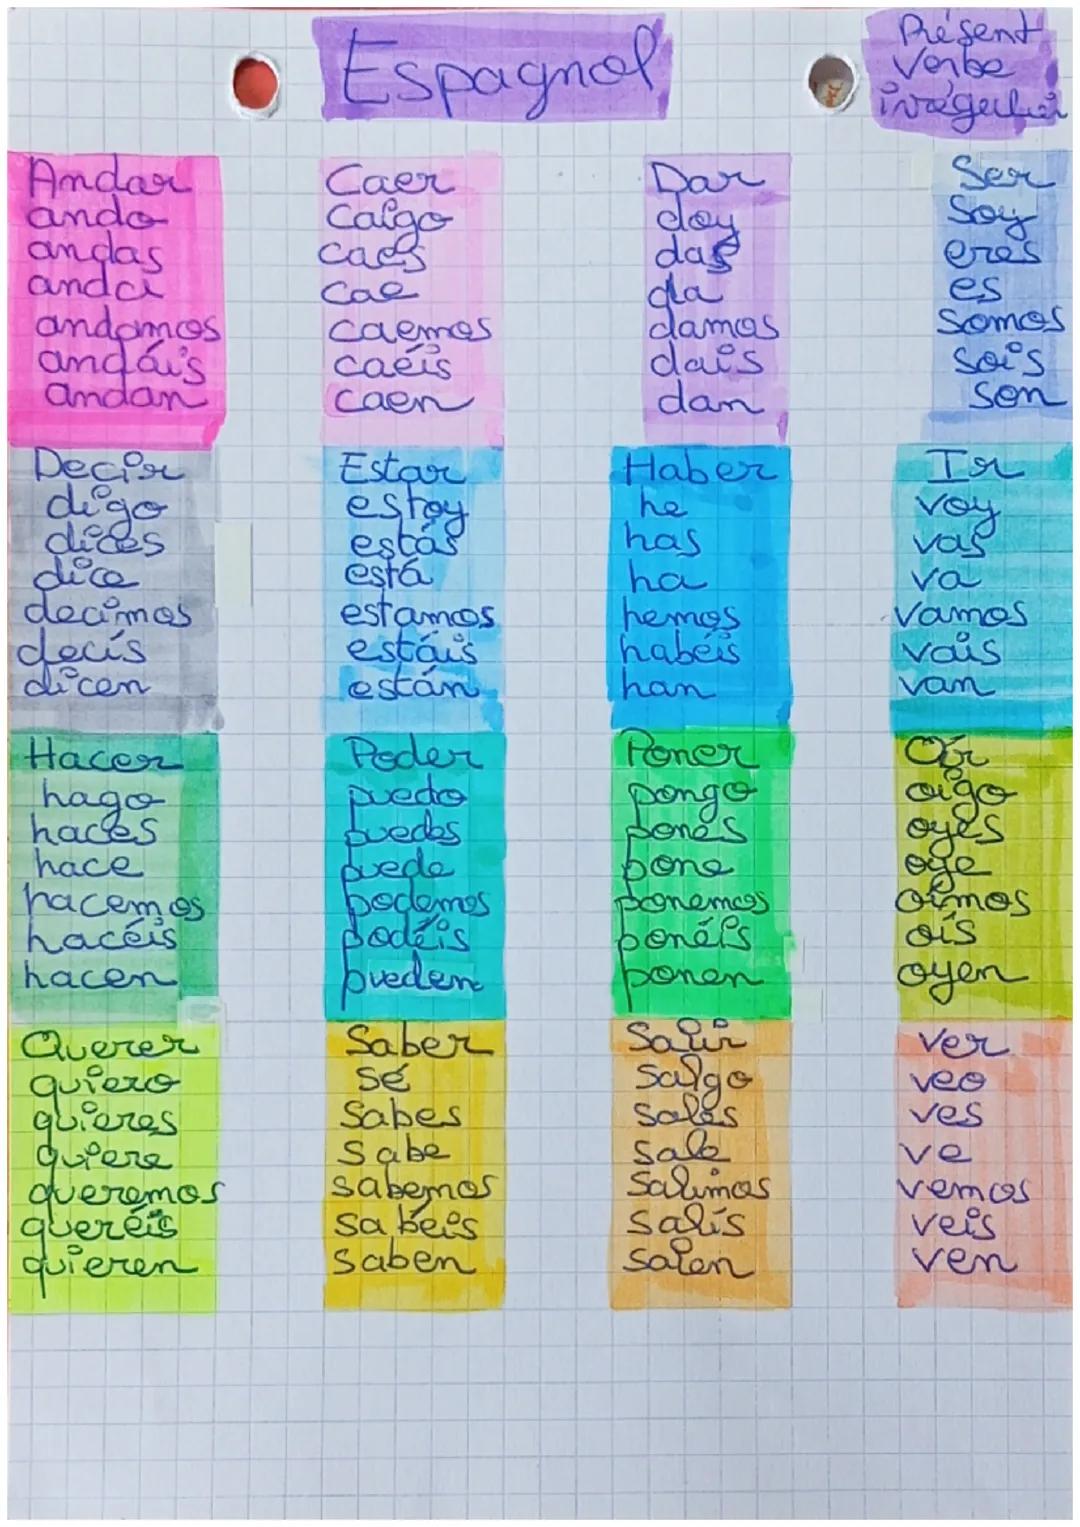 Espagnol
Présent
Verbe
irrégulier
Andar
ando
andas
anda
andamos
andáis
andan
Caer
Caigo
caes
cae
caemos
caéis
caen
Dar
doy
das
da
damos
dais
dan
Ser
Soy
eres
es
somos
sois
son
Decir
digo
dices
dice
decimos
decís
dicen
Estar
estoy
estás
está
estamos
estáis
están
Haber
he
has
ha
hemos
habéis
han
Ir
voy
vas
va
vamos
vais
van
Hacer
hago
haces
hace
hacemos
hacéis
hacen
Poder
puedo
puedes
puede
podemos
podéis
pueden
Poner
pongo
pones
pone
ponemos
ponéis
ponen
Oír
oigo
oyes
oye
oímos
oís
oyen
Querer
quiero
quieres
quiere
queremos
queréis
quieren
Saber
sé
Sabes
Sabe
sabemos
sabéis
saben
Salir
Salgo
Sales
Sale
Salimos
Salís
Salen
Ver
veo
ves
ve
vemos
veis
ven